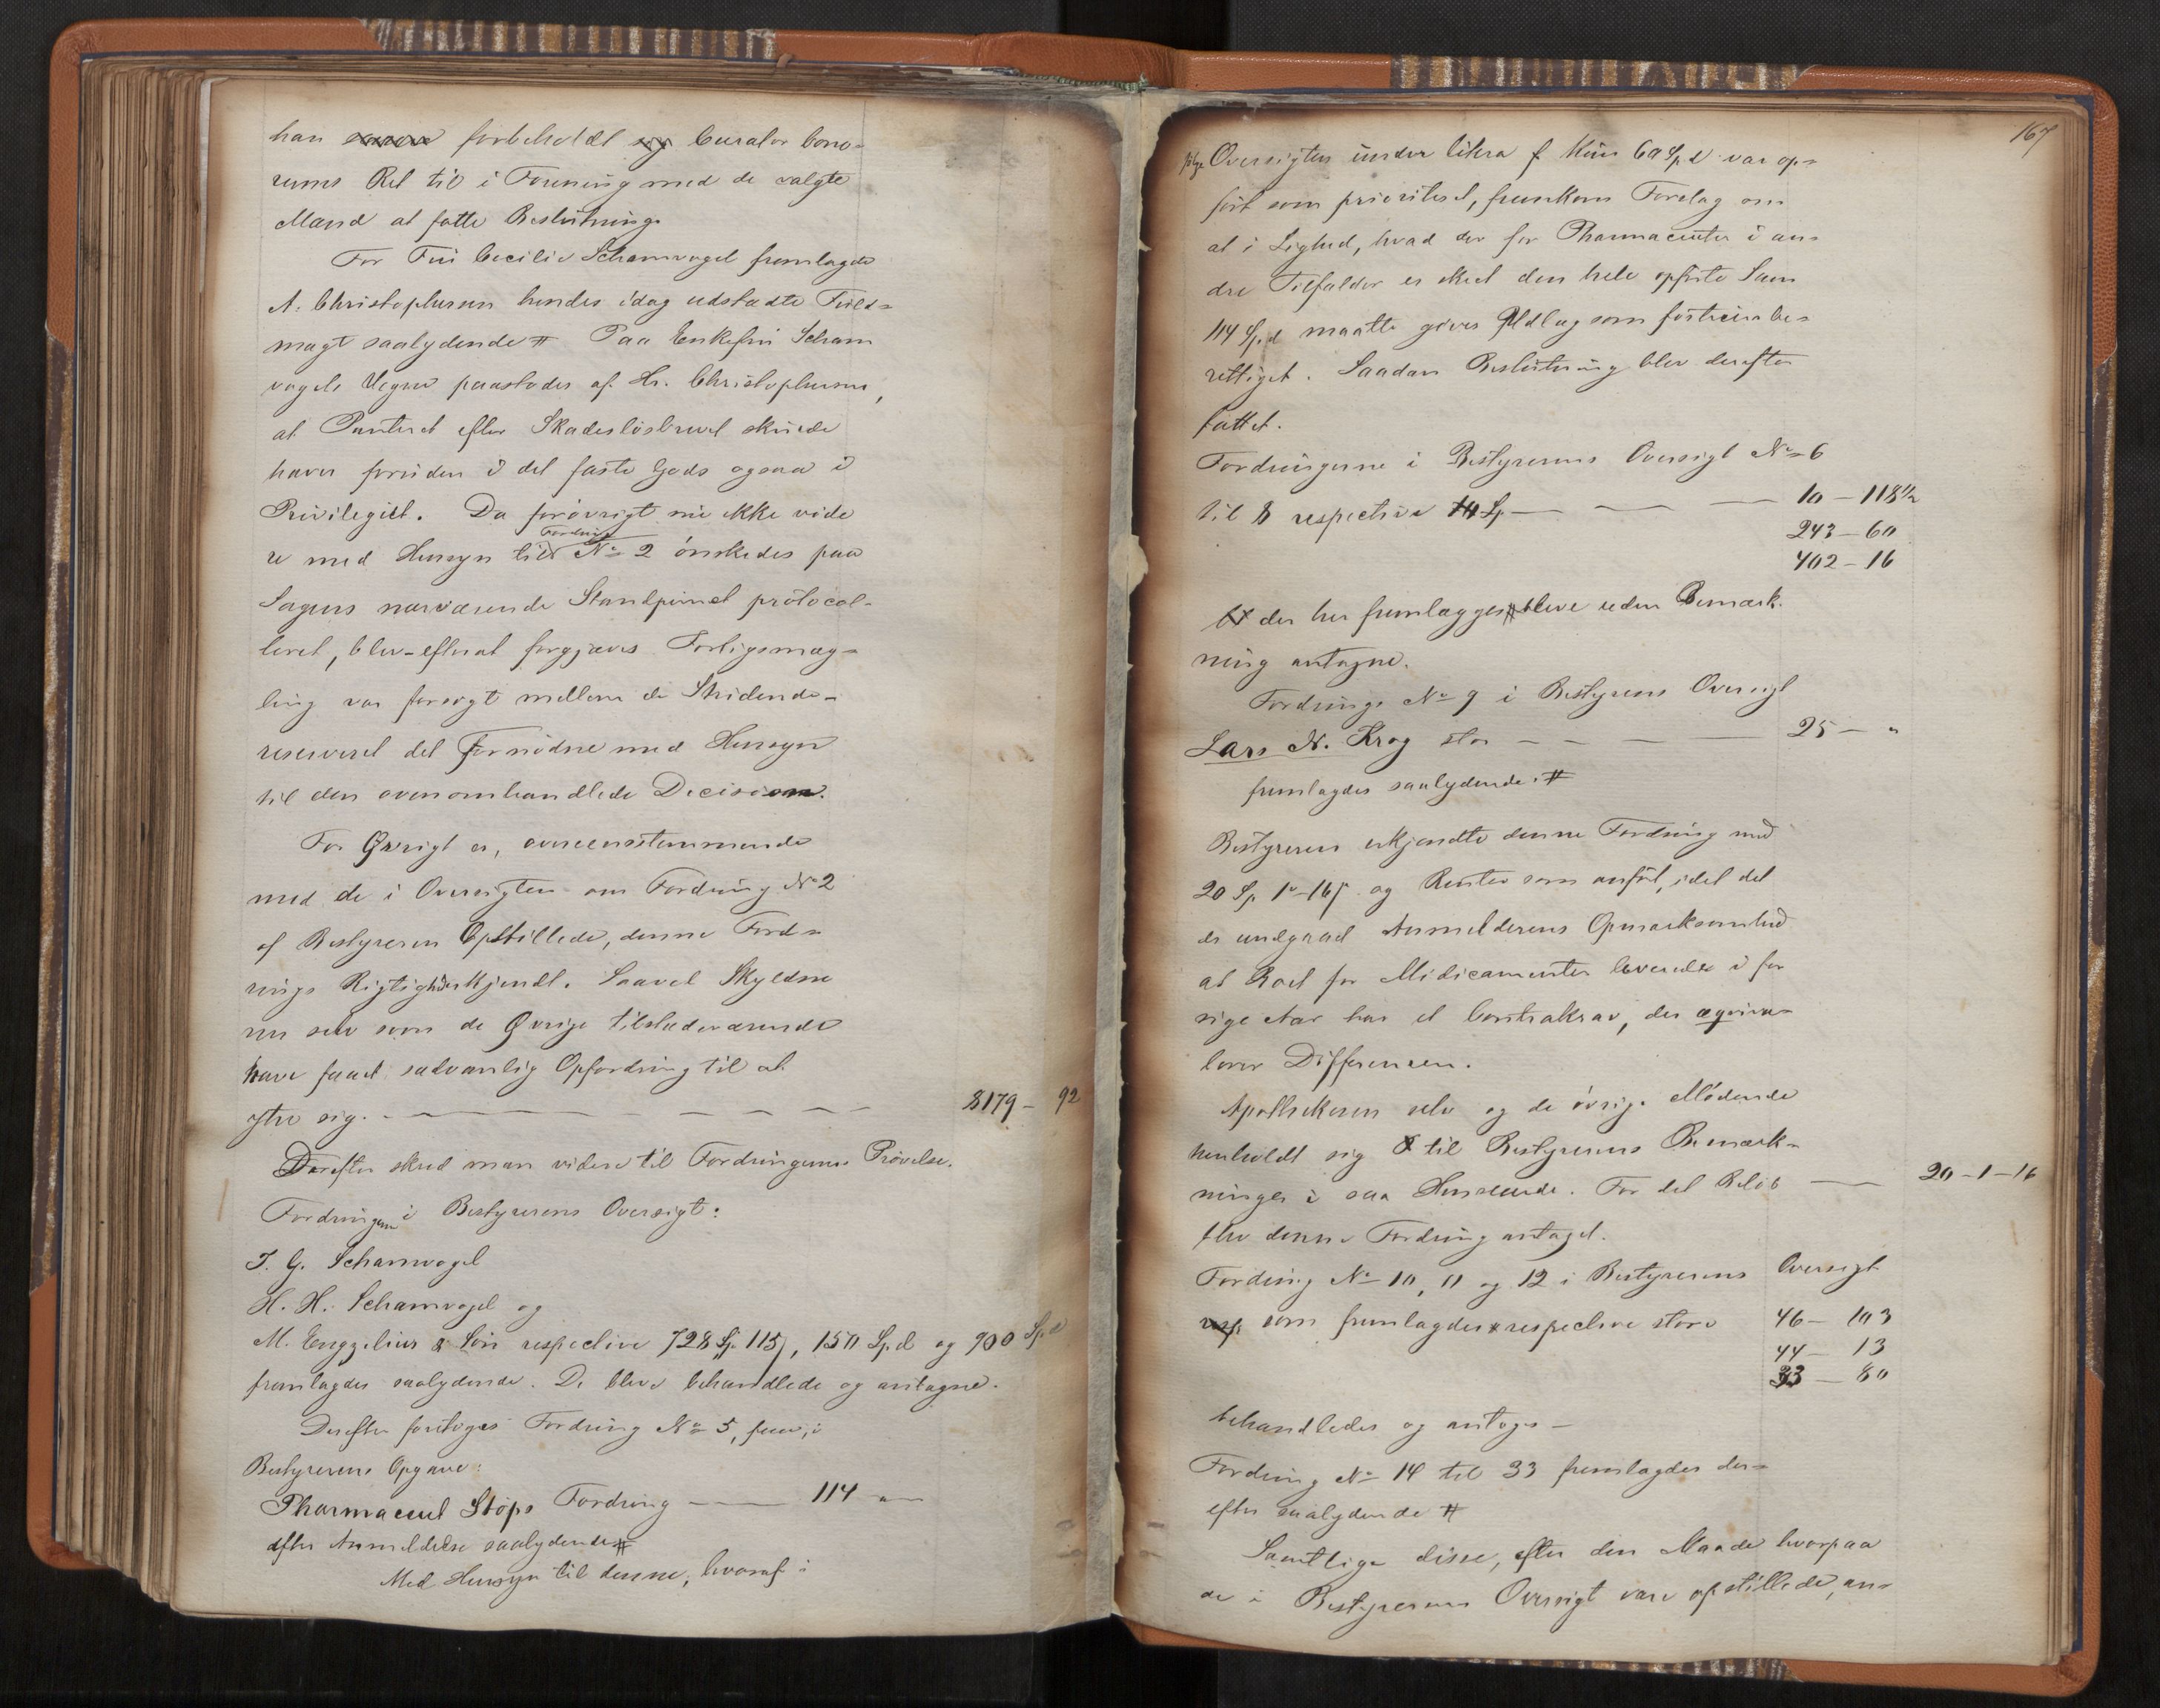 han forbeholdt Curator bono-
rums Ret til i Forening med de valgte
Mænd at fatte Beslutning.
For Fru Cecilie Schamvogel fremlagde
A. Christophersen hendes idag udstædte Fuld-
magt saalydende # Paa Enkefru Scham
vogels Vegne paastodes af Hr. Christophersen,
at Panteret efter Skadesløsbrevet skulde
haves foruden i det faste Gods ogsaa i
Privilegiet. Da forøvrigt nu ikke vide
re med Hensyn til Fordring No 2 ønskedes paa
Sagens nærværende Standpunct protocol-
leret, blev efterat forgjæves Forligsmæg-
ling var forsøgt mellem de Stridende
reserveret det Fornødne med Hensyn
til den ovenomhandlede Decision.
For Øvrigt er, overeensstemmende
med de i Oversigten om Fordring No 2
af Bestyreren Opstillede, denne Ford-
rings Rigtighed erkjendt. Saavel Skyldne
ren selv som de Øvrige tilstedeværende
have faaet sædvanlig Opfordring til at
yttre sig. — — — — — 8179 – 92
Derefter skred man videre til Fordringernes Prøvelse.
Fordringerne i Bestyrerens Oversigt:
J. G. Schamvogel
H. H. Schamvogel og
M. Enggelius & Søn respective 728 Sp. 115 s, 150 Spd og 900 Spd
fremlagdes saalydende. De bleve behandlede og antagne.
Derefter foretoges Fordring No 5, i
Bestyrerens Opgave:
Pharmaceut Støps Fordring — 114 - "
efter Anmeldelse saalydende #
Med Hensyn til denne, hvoraf i
167
følge Oversigten under litra f kun 60 Spd var op-
ført som prioriteret, fremkom Forslag om
at i Lighed, hvad der for Pharmaceuter i an-
dre Tilfælder er skeet den hele opførte Sum
114 Spd maatte gives Udlæg som fortrinsbe-
rettiget. Saadan Beslutning blev derefter
fattet.
Fordringerne i Bestyrerens Oversigt No 6
til 8 respective — — — 10 – 118 1/2
243 – 60
402 – 16
der her fremlægges # bleve uden Bemærk-
ning antagne.
Fordring No 9 i Bestyrerens Oversigt
Lars N. Krog stor — — — 25 – "
fremlagdes saalydende: #
Bestyreren erkjendte denne Fordring med
20 Sp. 1 – 16 s og Renter som anført, idet det
er undgaaet Anmelderens Opmærksomhed
at Boet for Medicamenter leverede i for
rige Aar har et Contrakrav, der æqviva-
lerer Differensen.
Apothekeren selv og de øvrige Mødende
henholdt sig til Bestyrerens Bemærk-
ninger i saa Henseende. For det Beløb — 20 – 1 – 16
blev denne Fordring antaget.
Fordring No 10, 11 og 12 i Bestyrerens Oversigt
som fremlagdes # respective store 46 – 103
44 – 13
33 – 80
behandledes og antoges —
Fordring No 14 til 33 fremlagdes der-
efter saalydende #
Samtlige disse, efter den Maade hvorpaa
de i Bestyrerens Oversigt vare opstillede, an-